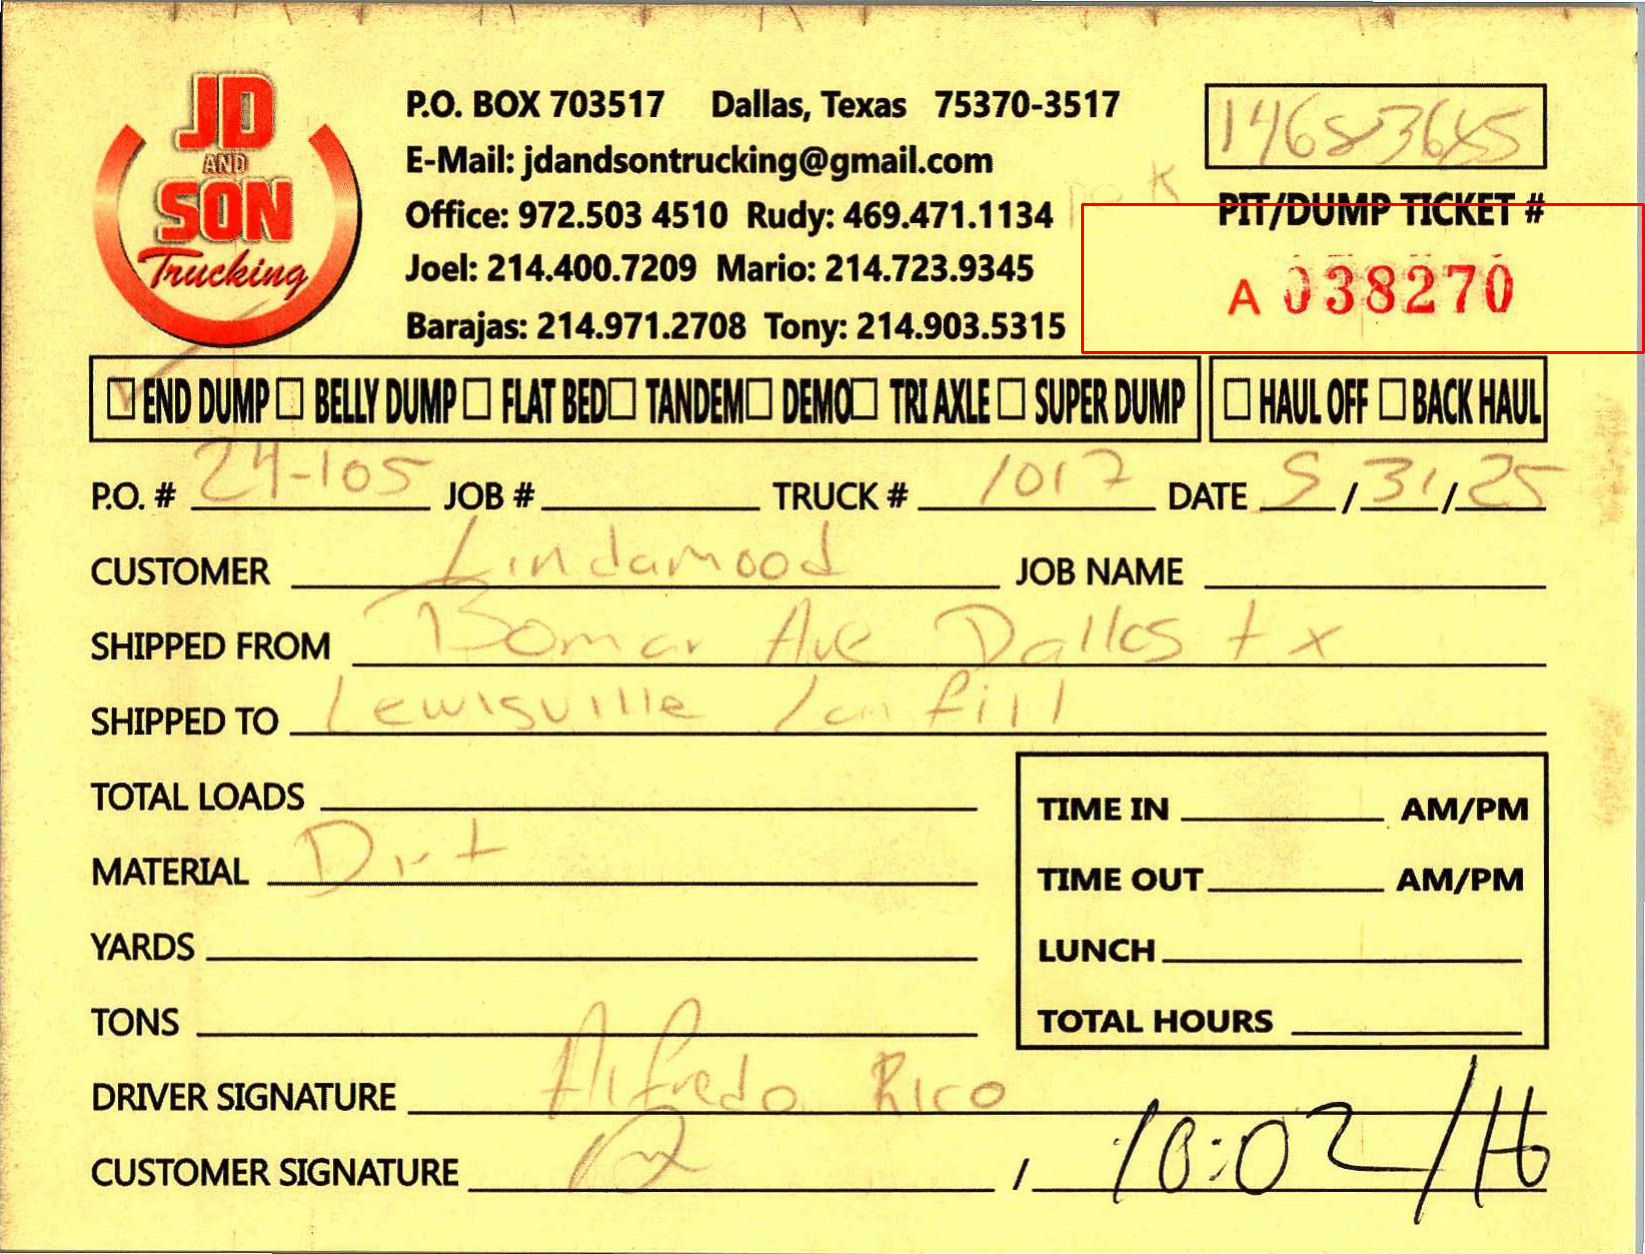 JD
AND
SON
Trucking
P.O. BOX 703517 Dallas, Texas 75370-3517
E-Mail: jdandsontrucking@gmail.com
Office: 972.503 4510 Rudy: 469.471.1134
Joel: 214.400.7209 Mario: 214.723.9345
Barajas: 214.971.2708 Tony: 214.903.5315
14683645
PIT/DUMP TICKET #
A 038270
☐ END DUMP ☐ BELLY DUMP ☐ FLAT BED ☐ TANDEM ☐ DEMO ☐ TRI AXLE ☐ SUPER DUMP ☐ HAUL OFF ☐ BACK HAUL
P.O. # 24-105 JOB # TRUCK # 1017 DATE 5/31/25
CUSTOMER Lindamood JOB NAME
SHIPPED FROM Bomar Ave Dallas tx
SHIPPED TO Lewisville lanfill
TOTAL LOADS
TIME IN AM/PM
MATERIAL Dirt
TIME OUT AM/PM
YARDS
LUNCH
TONS
TOTAL HOURS
DRIVER SIGNATURE Alfredo Rico
CUSTOMER SIGNATURE , 10:02/16